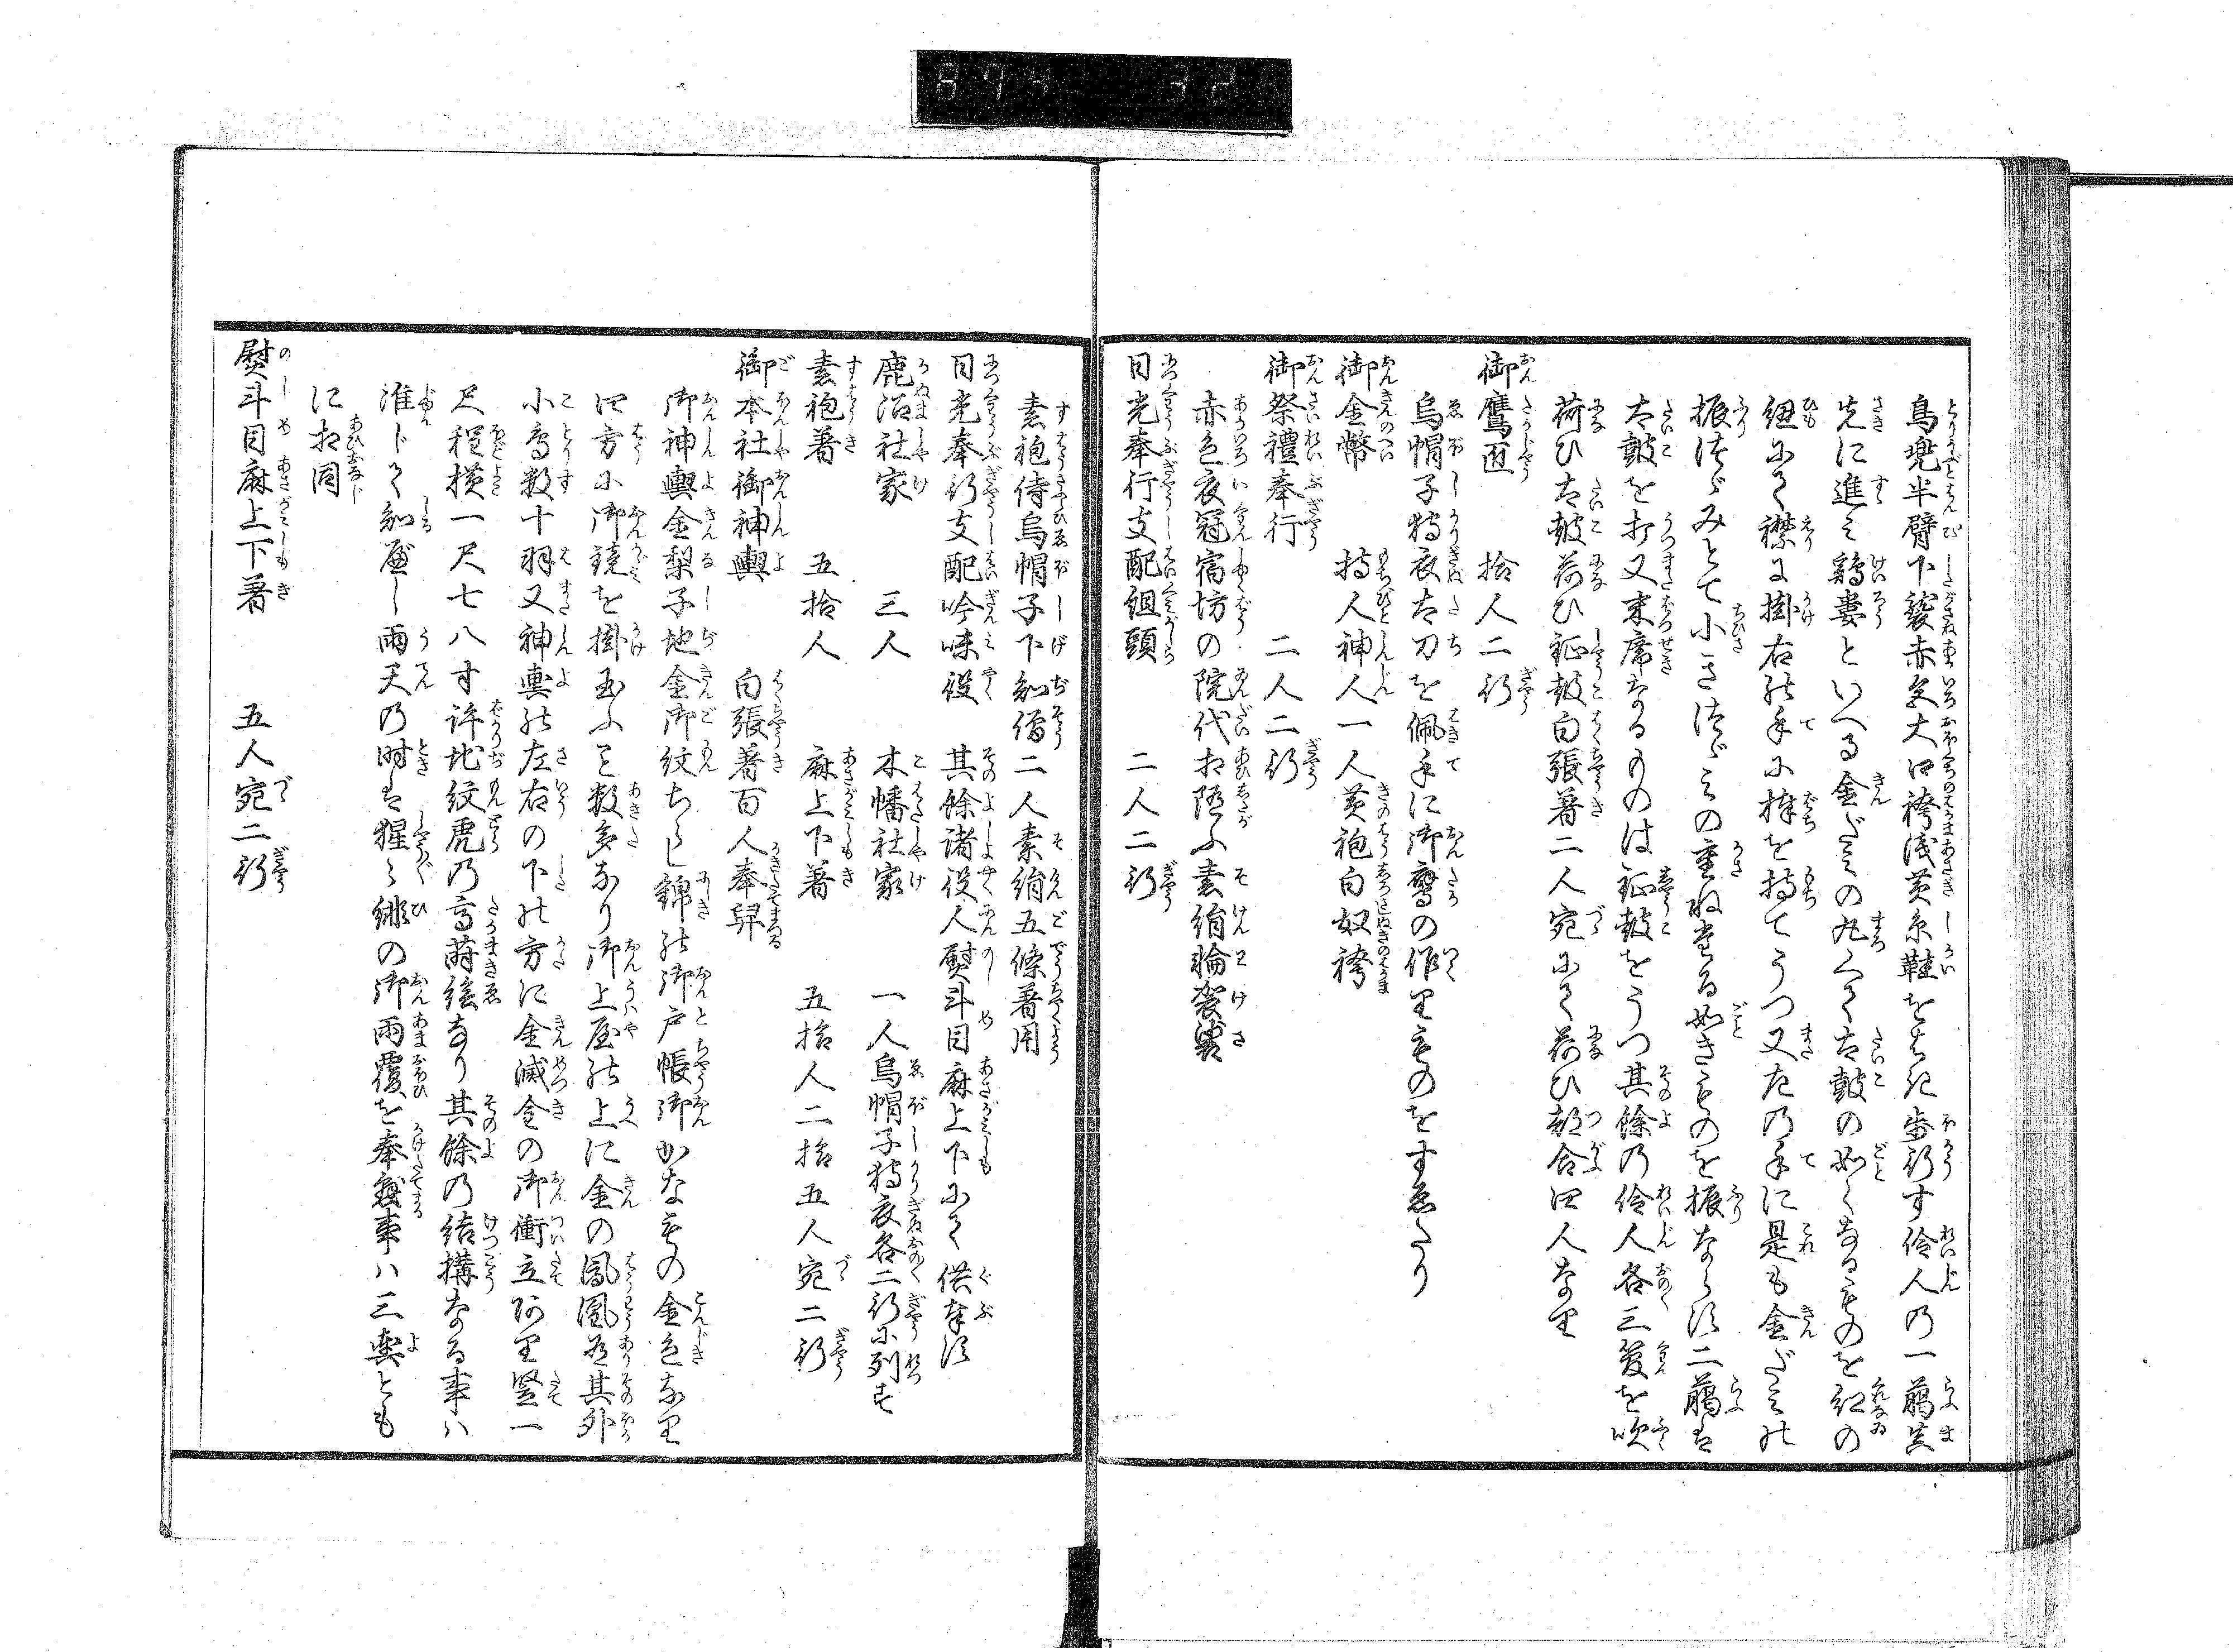 874 326
鳥兜半臂下襲赤色大口袴浅黄糸鞋をはき歩行す伶人の一﨟真
先に進み鶏婁といへる金だみの丸くて太鼓の如くなるものを紅の
紐にて襟に掛右の手に桴を持てうつ又左の手に是も金だみの
振つゞみとて小きつゞみの重ね業る如きものを振ならす二﨟は
太鼓を打又末席なるものは鉦鼓をうつ其餘の伶人各三管を吹
荷ひ太鼓荷ひ鉦鼓白張著二人宛にて荷ひ都合四人なり
御鷹匠　拾人二行
烏帽子狩衣太刀を佩手に御鷹の作りものをすゑたり
御金幣　持人神人一人黄袍白奴袴
御祭禮奉行　二人二行
赤色夜冠宿坊の院代相随ふ素絹輪袈裟
日光奉行支配組頭　二人二行
素袍侍烏帽子下知僧二人素絹五條著用
日光奉行支配吟味役　其餘諸役人熨斗目麻上下にて供奉す
鹿沼社家　三人　木幡社家　一人烏帽子狩衣各二行に列す
素袍著　五拾人　麻上下著　五拾人二拾五人宛二行
御本社御神輿　白張著百人奉舁
御神輿金梨子地金御紋ちらし錦の御戸帳御かなもの金色なり
四方に御鏡を掛玉ふこと数多あり御上屋の上に金の鳳凰有其外
小鳥数十羽又神輿の左右の下の方に金滅金の御衝立あり竪一
尺程横一尺七八寸許地紋虎の高蒔絵なり其餘の結構なる事ハ
准じて知べし雨天の時は猩々緋の御雨覆を奉懸事ハ三輿とも
に相同
熨斗目麻上下著　五人宛二行